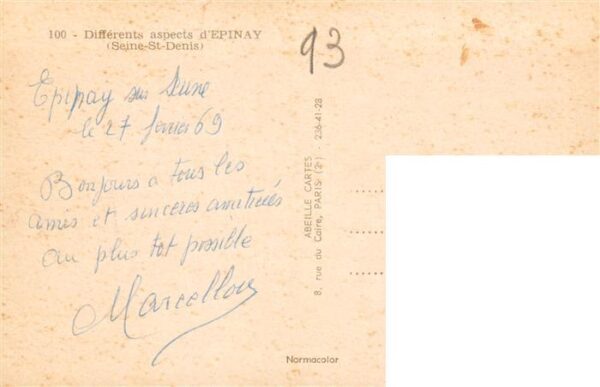 100 - Différents aspects d'EPINAY
(Seine-St-Denis)
93
Epinay sur Seine
le 27 fevrier 69
Bonjours a tous les
amis et sinceres amitiées
au plus tot possible
Marcellou
ABEILLE CARTES - 236-41-28
8, rue du Caire, PARIS (2e)
Normacolor